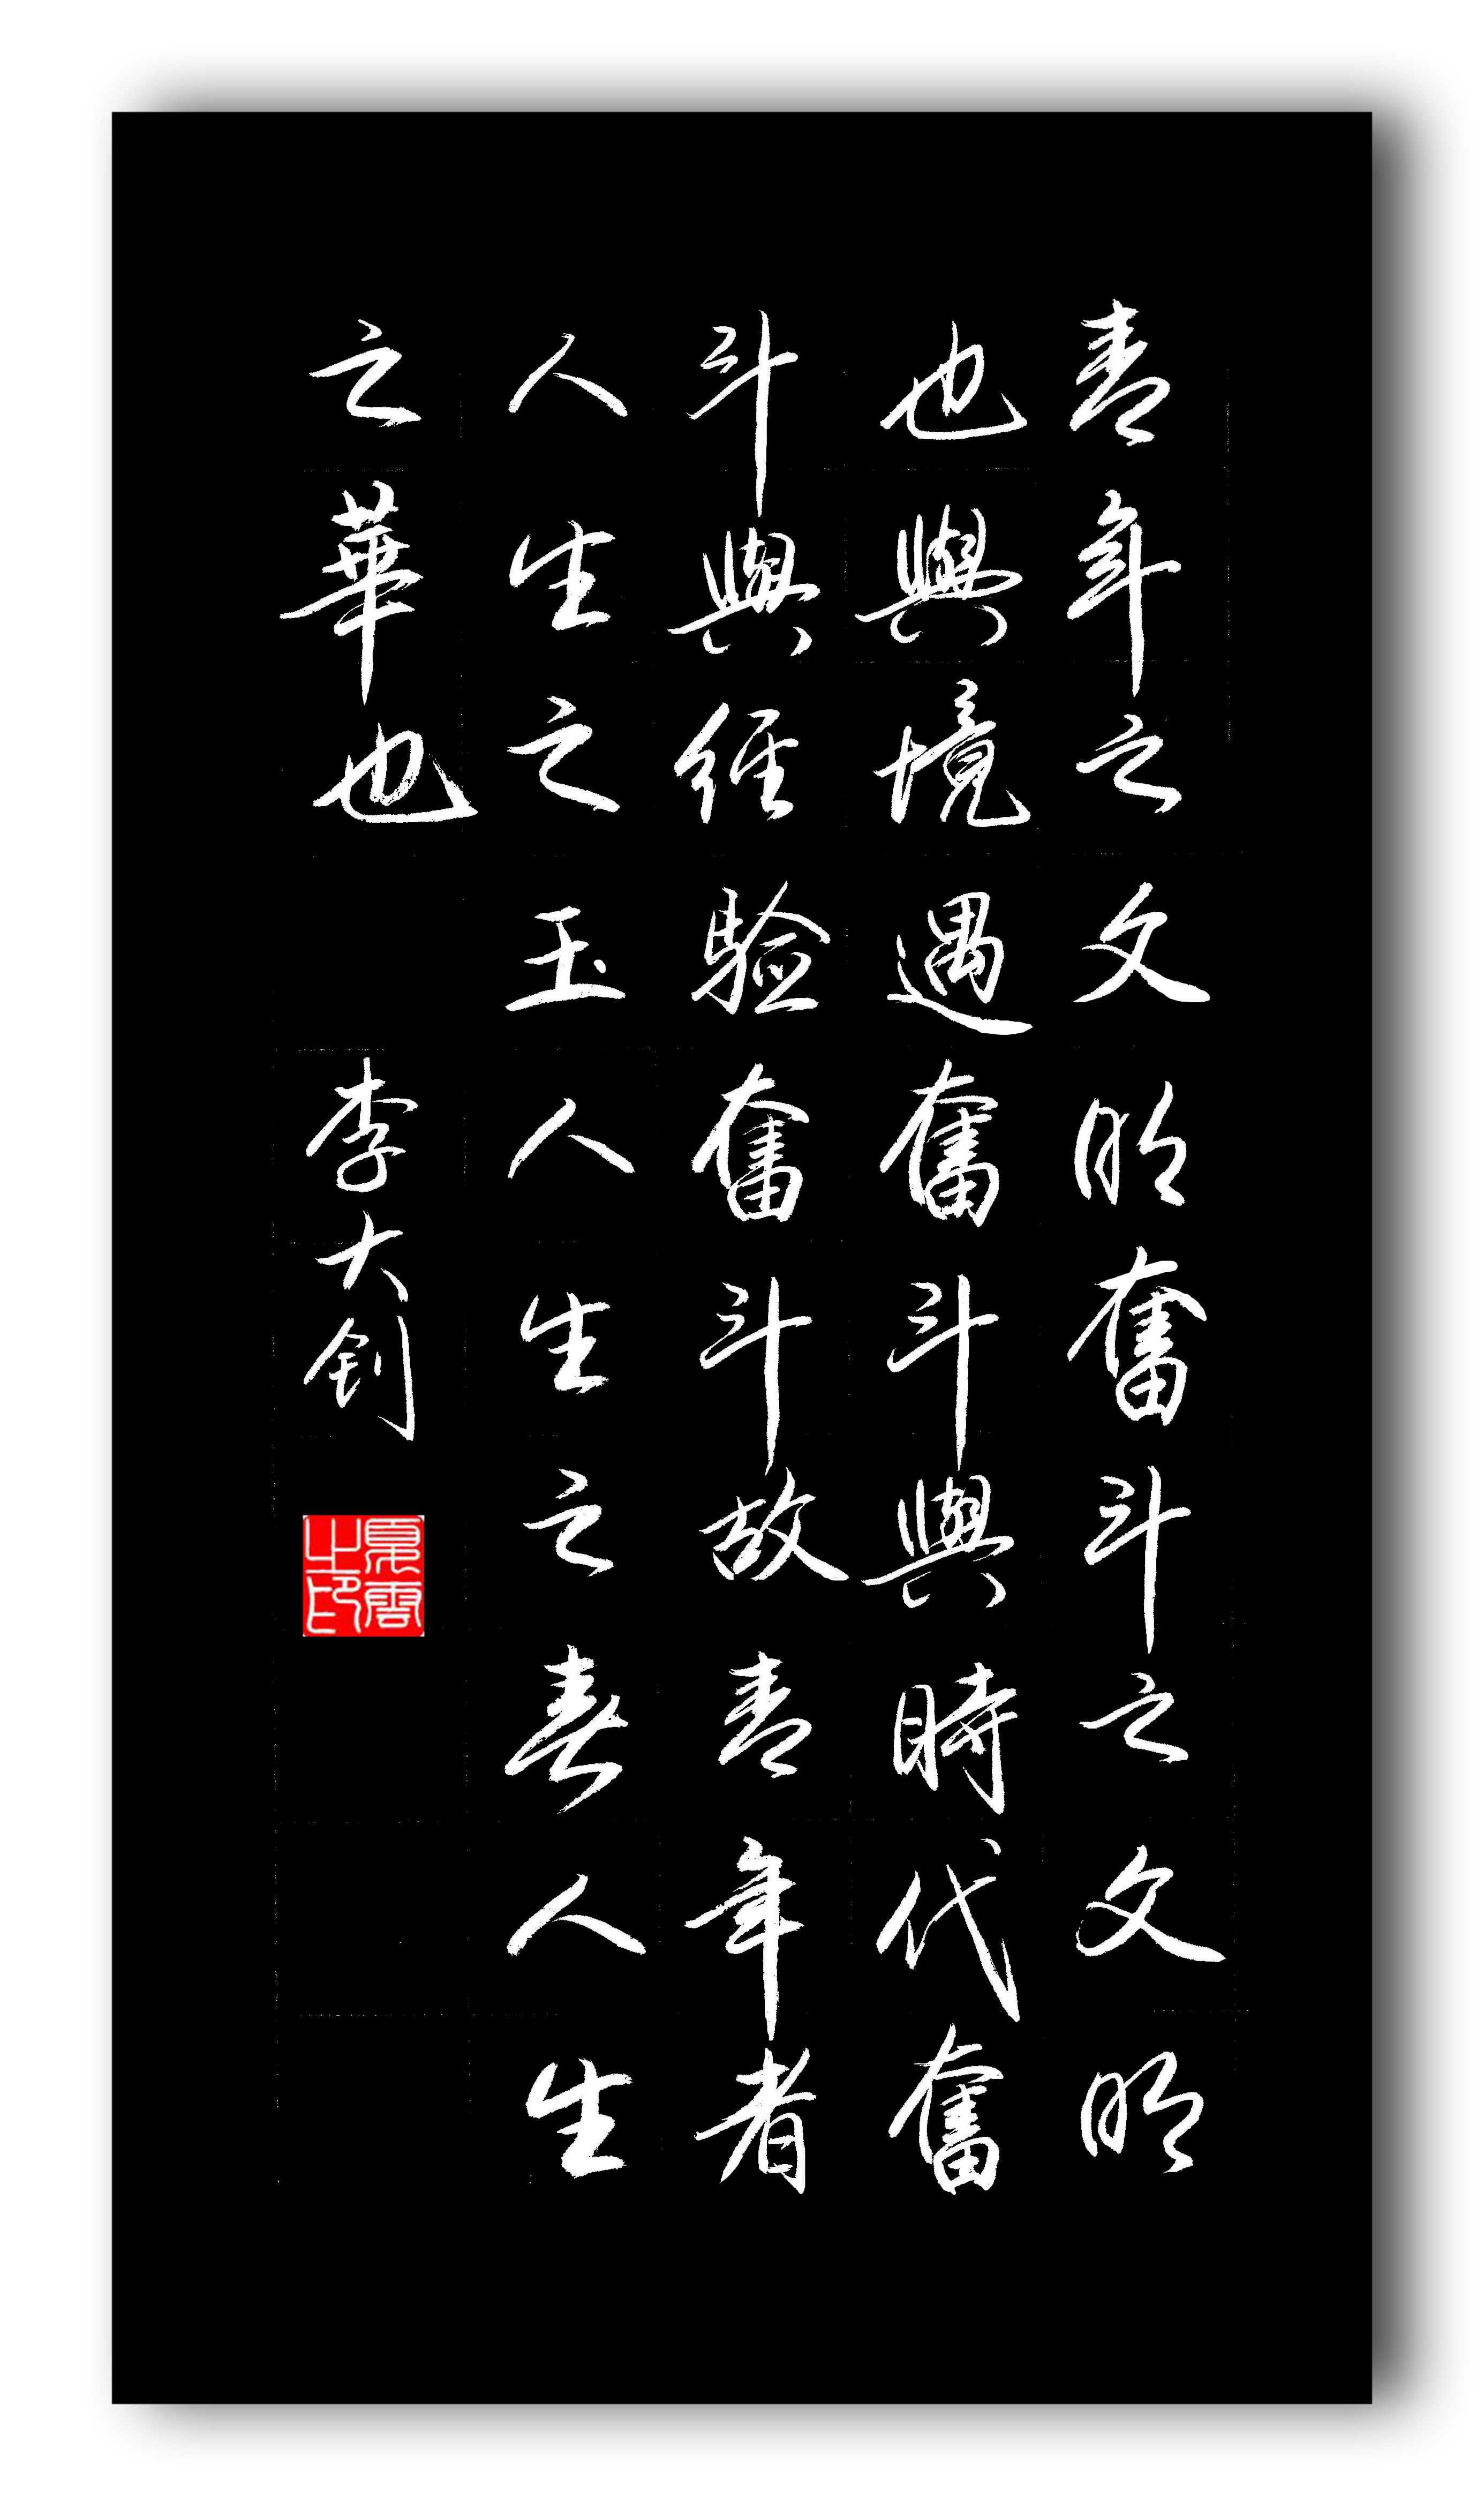 青年之文明奮斗之文明
也與境遇奮斗與時代奮
斗與经驗奮斗故青年者
人生之玉人生之春人生
之華也
李大钊
雲之印